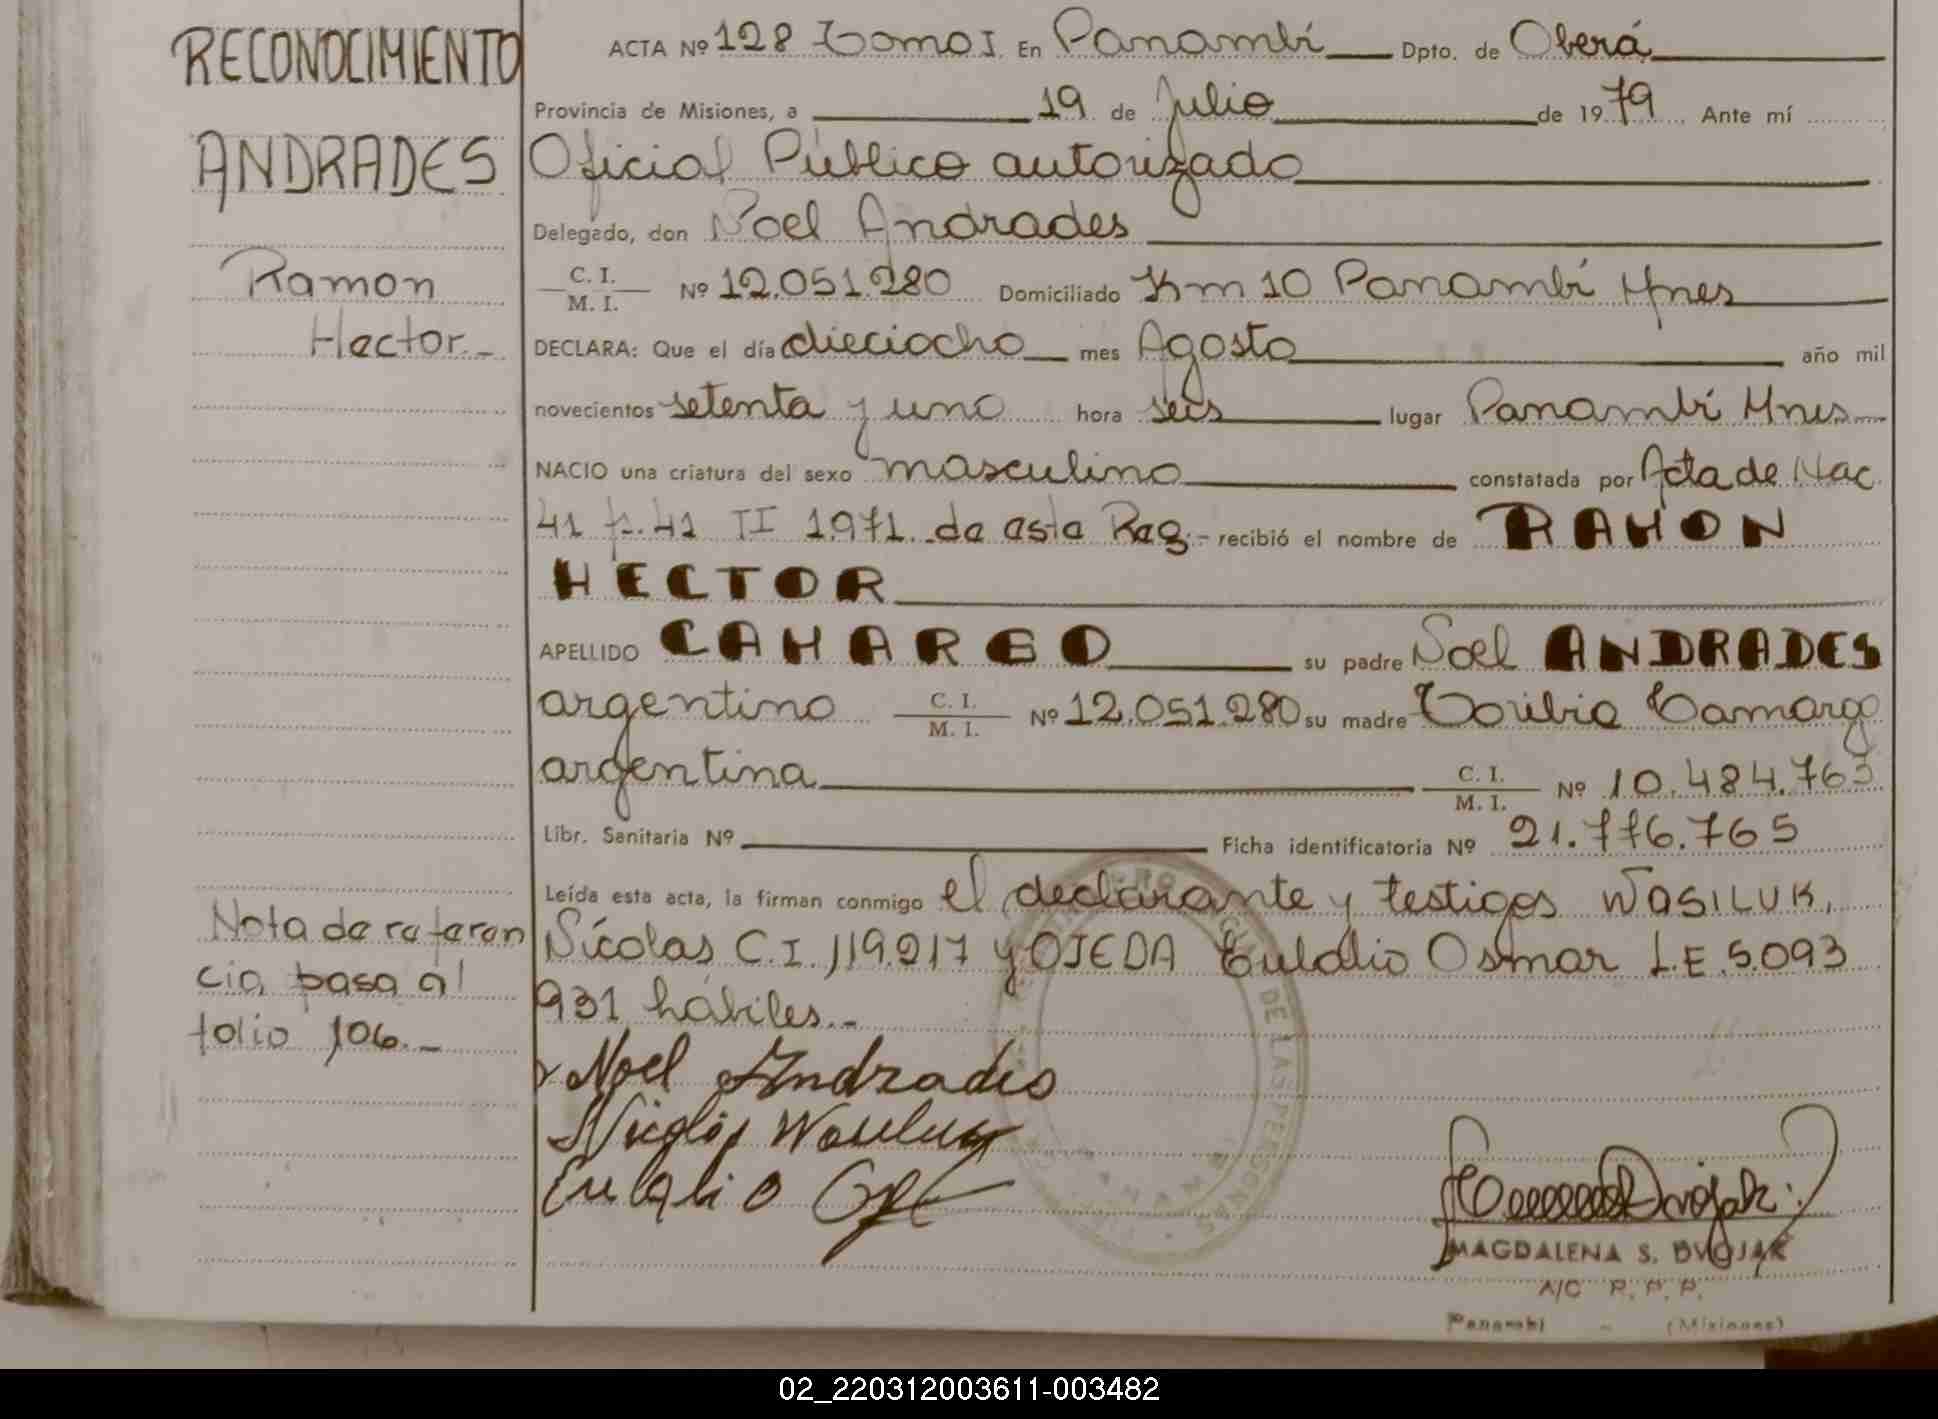 RECONOCIMIENTO
ANDRADES
Ramon
Hector.-
Nota de referen
cia pasa al
folio 106.-
ACTA Nº 128 Tomo I. En Panambí Dpto. de Oberá
Provincia de Misiones, a 19 de Julio de 1979 Ante mí
Oficial Público autorizado
Delegado, don Noel Andrades
C. I. / M. I. Nº 12.051.280 Domiciliado Km 10 Panambí Mnes
DECLARA: Que el día dieciocho mes Agosto año mil
novecientos setenta y uno hora seis lugar Panambí Mnes
NACIO una criatura del sexo masculino constatada por Acta de Nac
41 f. 41 II 1971 de este Reg.- recibió el nombre de RAMON
HECTOR
APELLIDO CAMARGO su padre Noel ANDRADES
argentino C. I. / M. I. Nº 12.051.280 su madre Toribia Camargo
argentina C. I. / M. I. Nº 10.484.763
Libr. Sanitaria Nº Ficha identificatoria Nº 21.776.765
Leída esta acta, la firman conmigo el declarante y testigos WASILUK,
Nícolas C.I. 119.217 y OJEDA Eulalio Osmar L.E. 5.093
931 hábiles.-
Noel Andrades
Eulalio
MAGDALENA S. DVOJAK
A/C R. P. P.
Panambí - (Misiones)
DE LAS PERSONAS
02_220312003611-003482